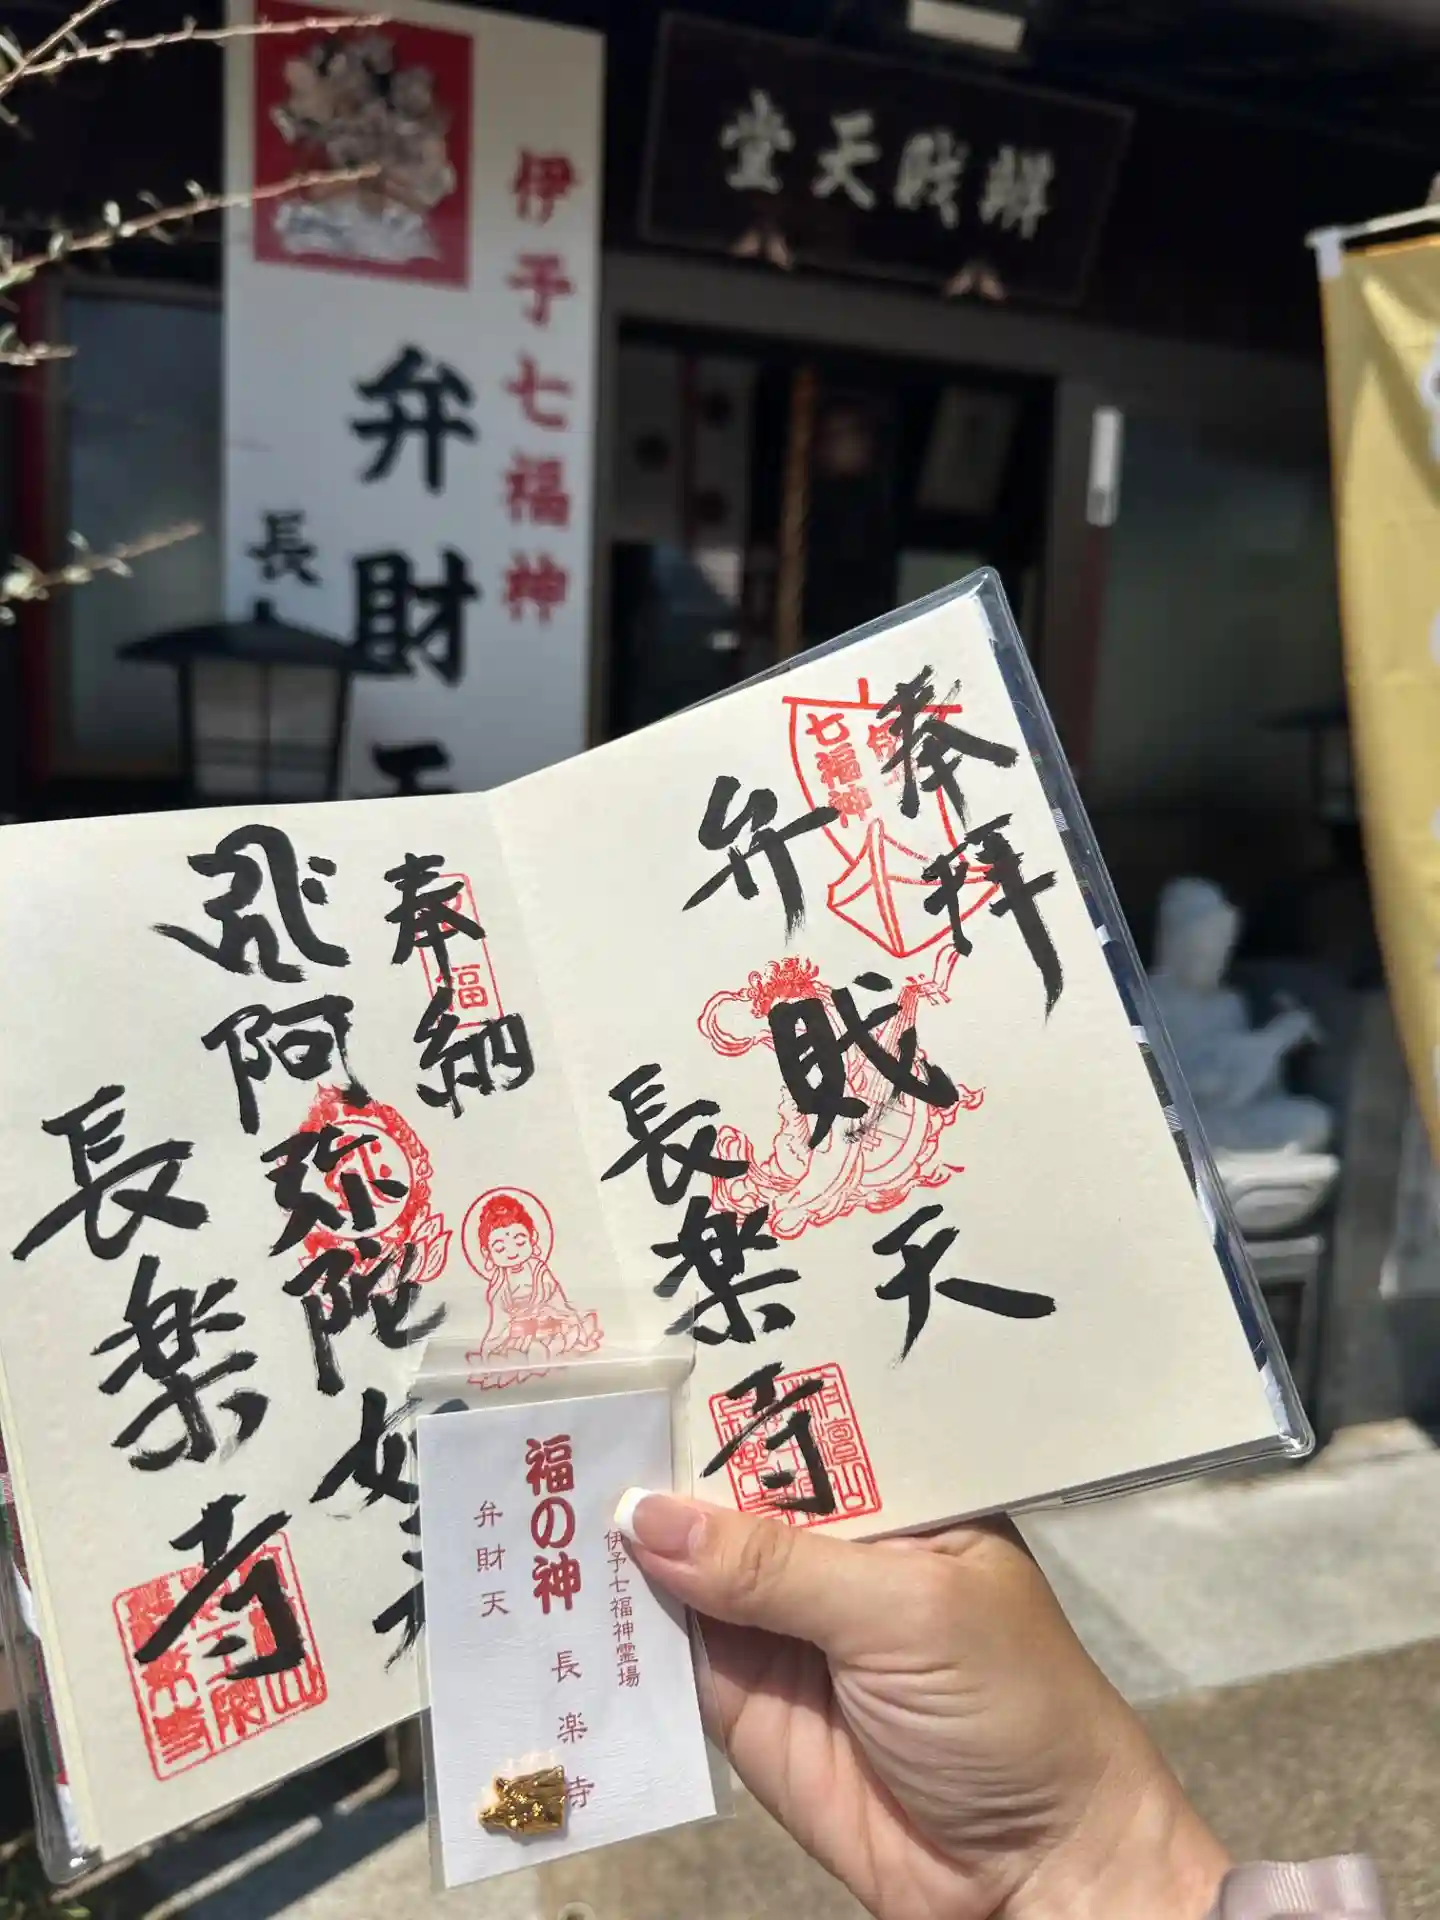 辨戝天堂
伊予七福神
弁財天
長
奉拝
七福神
弁戝天
長楽寺
奉納
福
阿弥陀如
長楽寺
伊予七福神霊場
福の神
長楽寺
弁財天